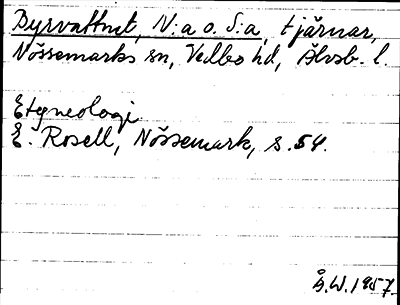 Dyrvattnet, N:a o. S:a, tjärnar,
Nössemarks sn, Vedbo hd, Älvsb. l.
Etymologi.
E. Rosell, Nössemark, s. 54.
Å.W. 1957.